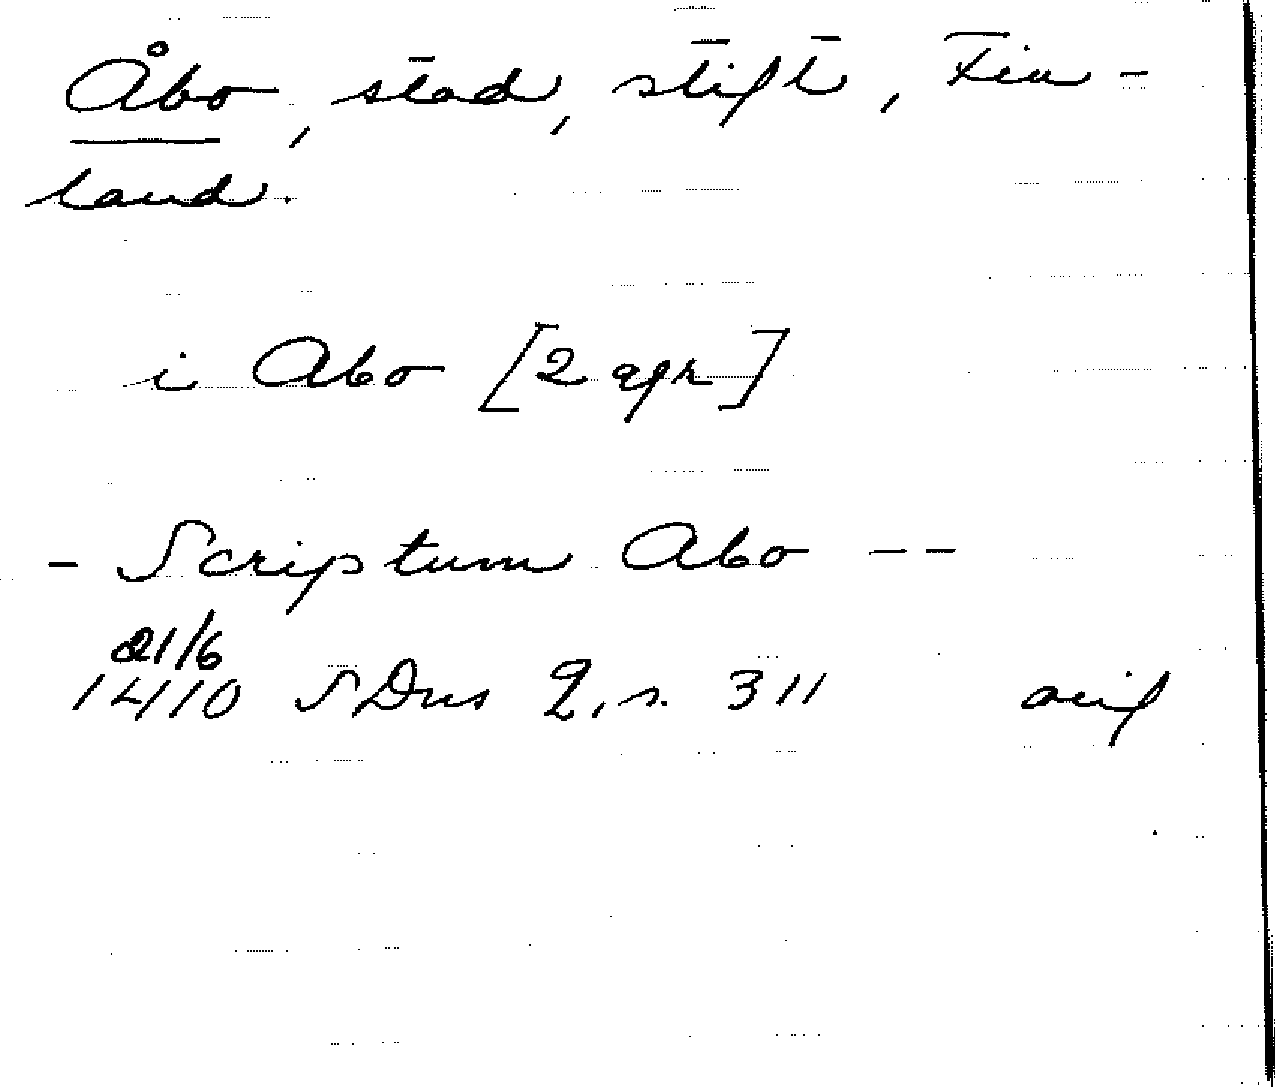 Åbo, stad, stift, Fin-
land.
i Abo [2 ggr]
- Scriptum Abo --
21/6
1410 SDns 2, s. 311 orig